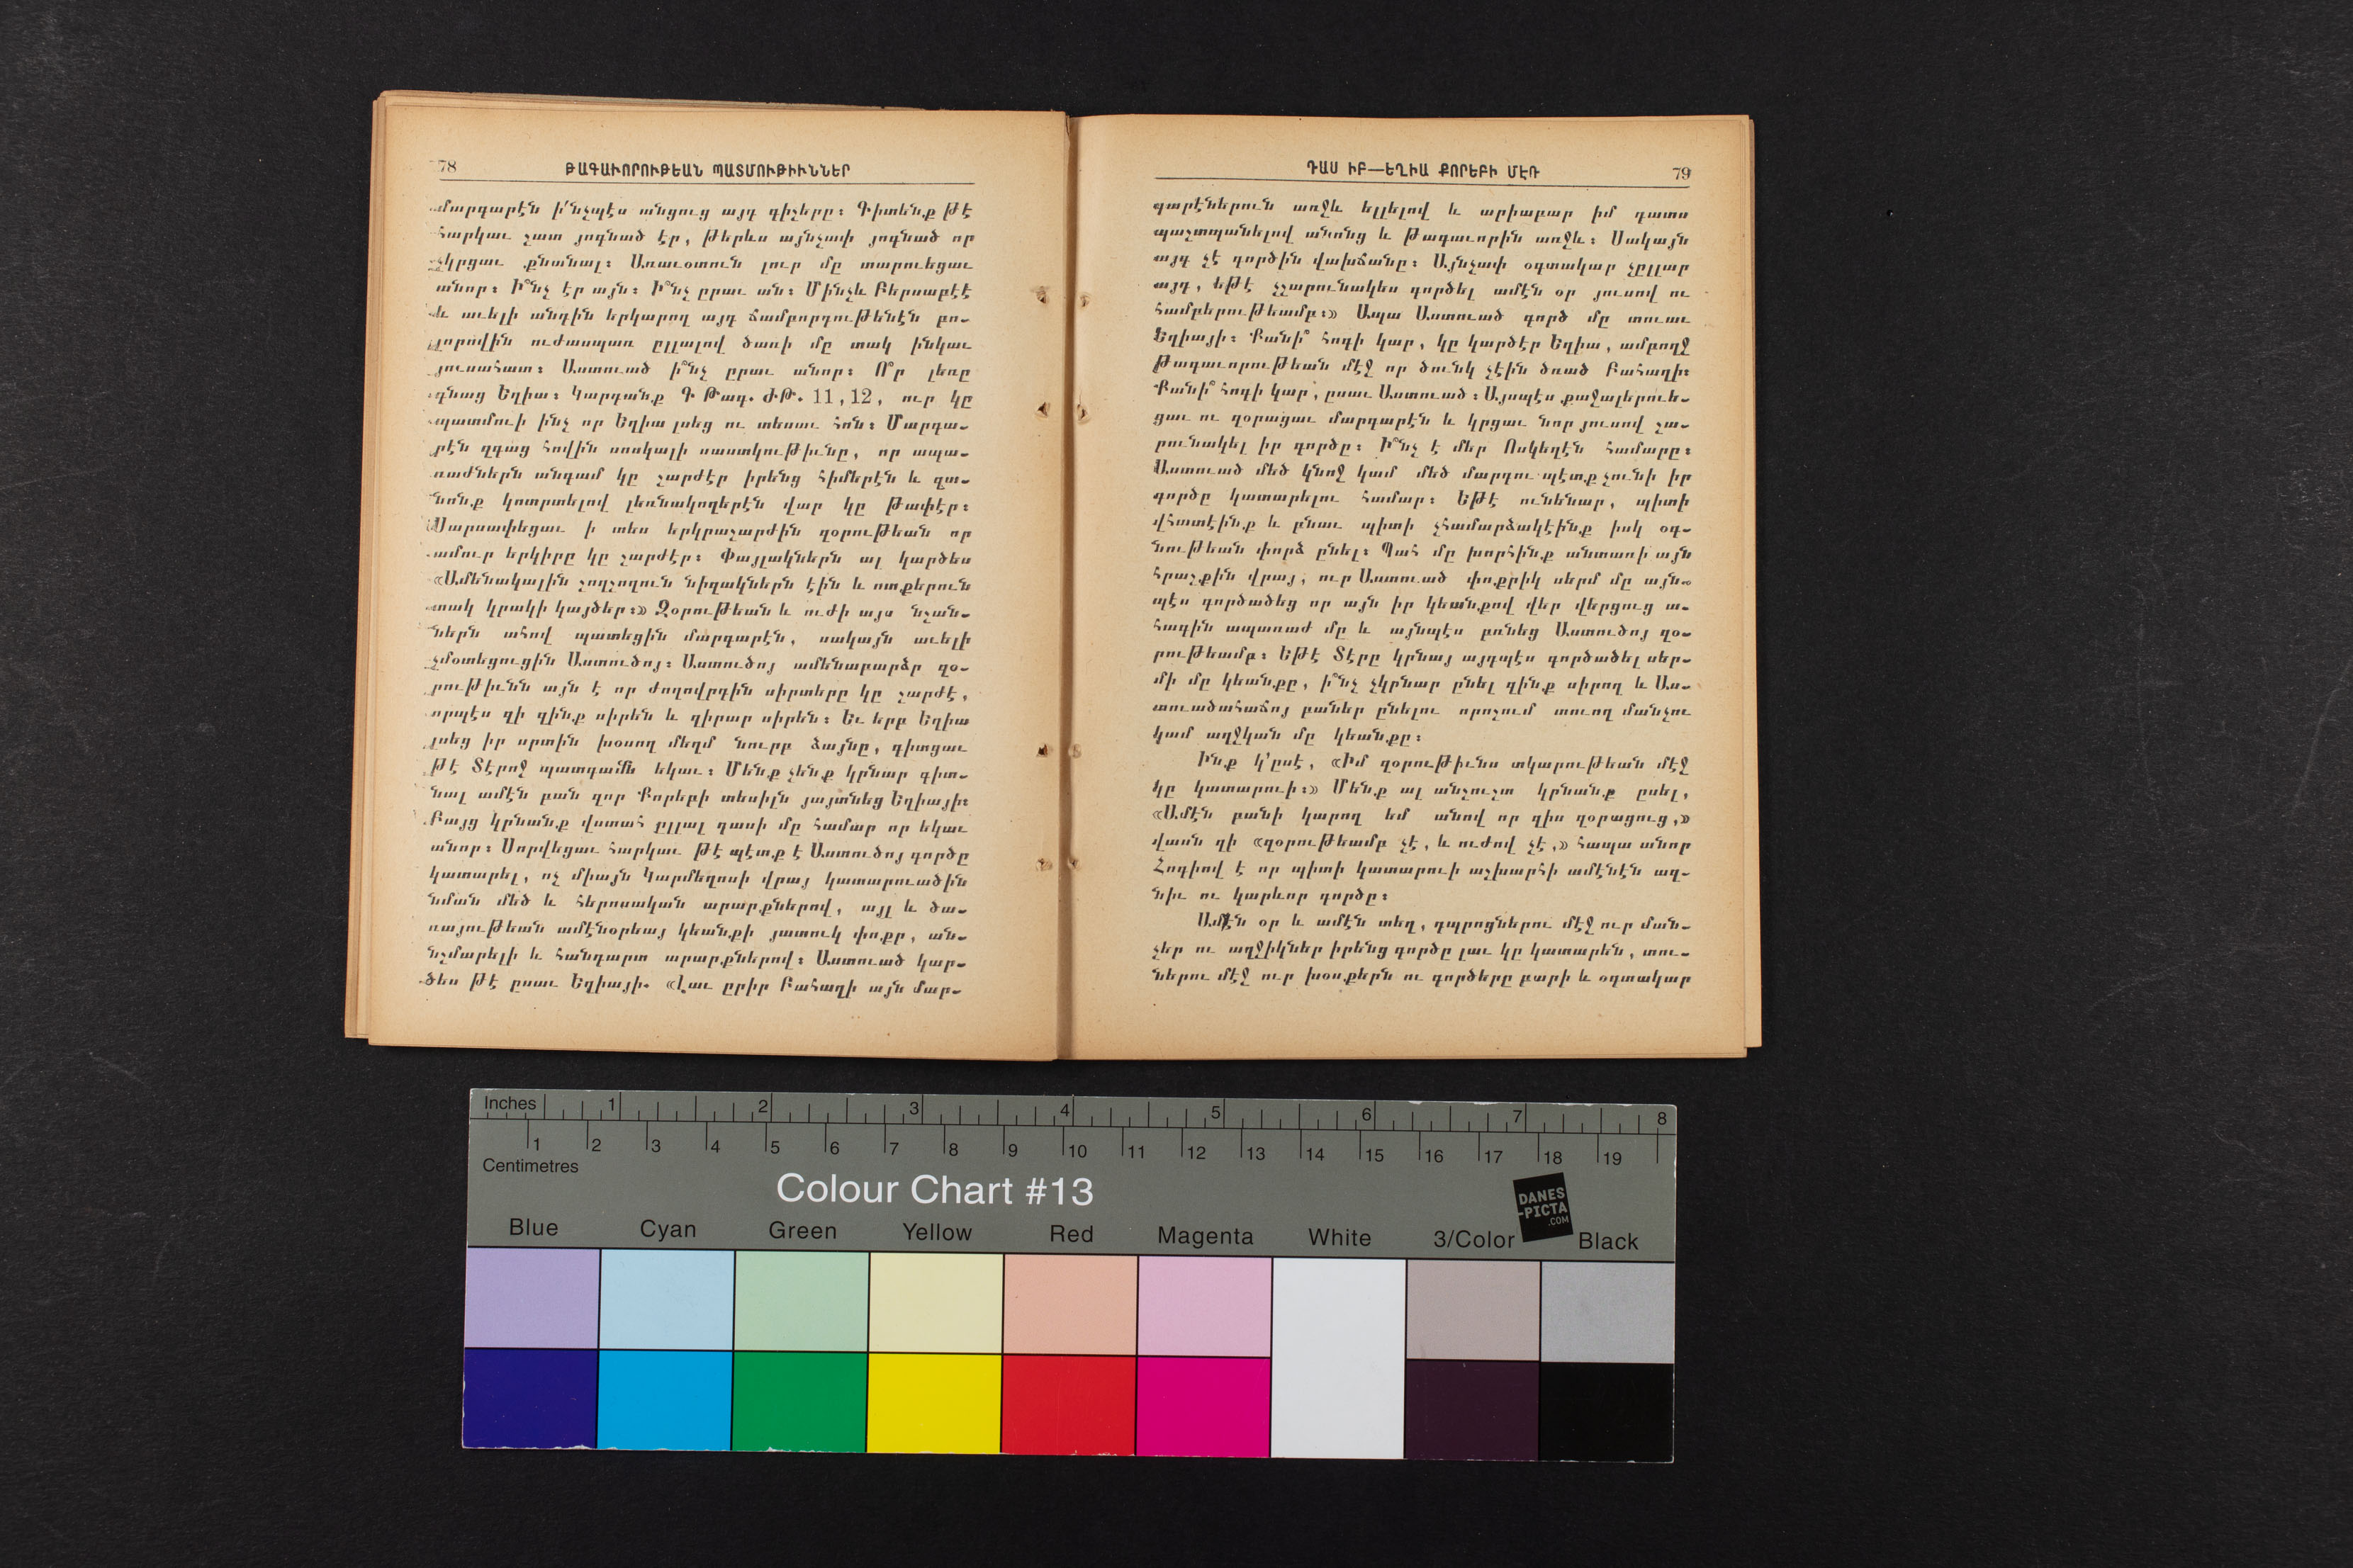 78
ԹԱԳԱՒՈՐՈՒԹԵԱՆ ՊԱՏՄՈՒԹԻՒՆՆԵՐ
մարգարէն ի՛նչպէս անցուց այդ գիշերը։ Գիտենք թէ
հարկաւ շատ յոգնած էր, թերևս այնչափ յոգնած որ
չկրցաւ քնանալ։ Առաւօտուն լուր մը տարուեցաւ
անոր։ Ի՞նչ էր այն։ Ի՞նչ ըրաւ ան։ Մինչև Բերսաբէէ
և աւելի անդին երկարող այդ ճամբորդութենէն բո-
լորովին ուժասպառ ըլլալով ծառի մը տակ ինկաւ
յուսահատ։ Աստուած ի՞նչ ըրաւ անոր։ Ո՞ր լեռը
գնաց Եղիա։ Կարդանք Գ Թագ. ԺԹ. 11, 12, ուր կը
պատմուի ինչ որ Եղիա լսեց ու տեսաւ հոն։ Մարգա-
րէն զգաց հովին սոսկալի սաստկութիւնը, որ ապա-
ռաժներն անգամ կը շարժէր իրենց հիմերէն և զա-
նոնք կոտրտելով լեռնակողերէն վար կը թափէր։
Սարսափեցաւ ի տես երկրաշարժին զօրութեան որ
ամուր երկիրը կը շարժէր։ Փայլակներն ալ կարծես
«Ամենակալին շողշողուն նիզակներն էին և ոտքերուն
տակ կրակի կայծեր։» Զօրութեան և ուժի այս նշան-
ներն ահով պատեցին մարգարէն, սակայն աւելի
չմօտեցուցին Աստուծոյ։ Աստուծոյ ամենաբարձր զօ-
րութիւնն այն է որ ժողովրդին սիրտերը կը շարժէ,
որպէս զի զինք սիրեն և զիրար սիրեն։ Եւ երբ Եղիա
լսեց իր սրտին խօսող մեղմ նուրբ ձայնը, գիտցաւ
թէ Տէրոջ պատգամն եկաւ։ Մենք չենք կրնար գիտ-
նալ ամէն բան զոր Քորեբի տեսիլն յայտնեց Եղիայի։
Բայց կրնանք վստահ ըլլալ դասի մը համար որ եկաւ
անոր։ Սորվեցաւ հարկաւ թէ պէտք է Աստուծոյ գործը
կատարել, ոչ միայն Կարմեղոսի վրայ կատարուածին
նման մեծ և հերոսական արարքներով, այլ և ծա-
ռայութեան ամէնօրեայ կեանքի յատուկ փոքր, ան-
նշմարելի և հանդարտ արարքներով։ Աստուած կար-
ծես թէ ըսաւ Եղիայի. «Լաւ ըրիր Բահաղի այն մար-
ԴԱՍ ԻԲ—ԵՂԻԱ ՔՈՐԵԲԻ ՄԷՌ
79
գարէներուն առջև ելլելով և արիաբար իմ դատս
պաշտպանելով անոնց և թագաւորին առջև։ Սակայն
այդ չէ գործին վախճանը։ Այնչափ օգտակար չըլլար
այդ, եթէ չշարունակես գործել ամէն օր յուսով ու
համբերութեամբ։» Ապա Աստուած գործ մը տուաւ
Եղիայի։ Քանի՞ հոգի կար, կը կարծէր Եղիա, ամբողջ
թագաւորութեան մէջ որ ծունկ չէին ծռած Բահաղի։
Քանի՞ հոգի կար, ըսաւ Աստուած։ Այսպէս քաջալերուե-
ցաւ ու զօրացաւ մարգարէն և կրցաւ նոր յուսով շա-
րունակել իր գործը։ Ի՞նչ է մեր Ոսկեղէն համարը։
Աստուած մեծ կնոջ կամ մեծ մարդու պէտք չունի իր
գործը կատարելու համար։ Եթէ ունենար, պիտի
վհատէինք և բնաւ պիտի չհամարձակէինք իսկ օգ-
նութեան փորձ ընել։ Պահ մը խորհինք անտառի այն
հրաշքին վրայ, ուր Աստուած փոքրիկ սերմ մը այն-
պէս գործածեց որ այն իր կեանքով վեր վերցուց ա-
հագին ապառաժ մը և այնպէս բռնեց Աստուծոյ զօ-
րութեամբ։ Եթէ Տէրը կրնայ այդպէս գործածել սեր-
մի մը կեանքը, ի՞նչ չկրնար ընել զինք սիրող և Աս-
տուածահաճոյ բաներ ընելու որոշում տուող մանչու
կամ աղջկան մը կեանքը։
Ինք կ՚ըսէ, «Իմ զօրութիւնս տկարութեան մէջ
կը կատարուի։» Մենք ալ անշուշտ կրնանք ըսել,
«Ամէն բանի կարող եմ անով որ զիս զօրացուց,»
վասն զի «զօրութեամբ չէ, և ուժով չէ,» հապա անոր
Հոգիով է որ պիտի կատարուի աշխարհի ամէնէն ազ-
նիւ ու կարևոր գործը։
Ամէն օր և ամէն տեղ, դպրոցներու մէջ ուր ման-
չեր ու աղջիկներ իրենց գործը լաւ կը կատարեն, տու-
ներու մէջ ուր խօսքերն ու գործերը բարի և օգտակար
Inches 1 2 3 4 5 6 7 8
1 2 3 4 5 6 7 8 9 10 11 12 13 14 15 16 17 18 19
Centimetres
Colour Chart #13
DANES
-PICTA
.COM
Blue Cyan Green Yellow Red Magenta White 3/Color Black